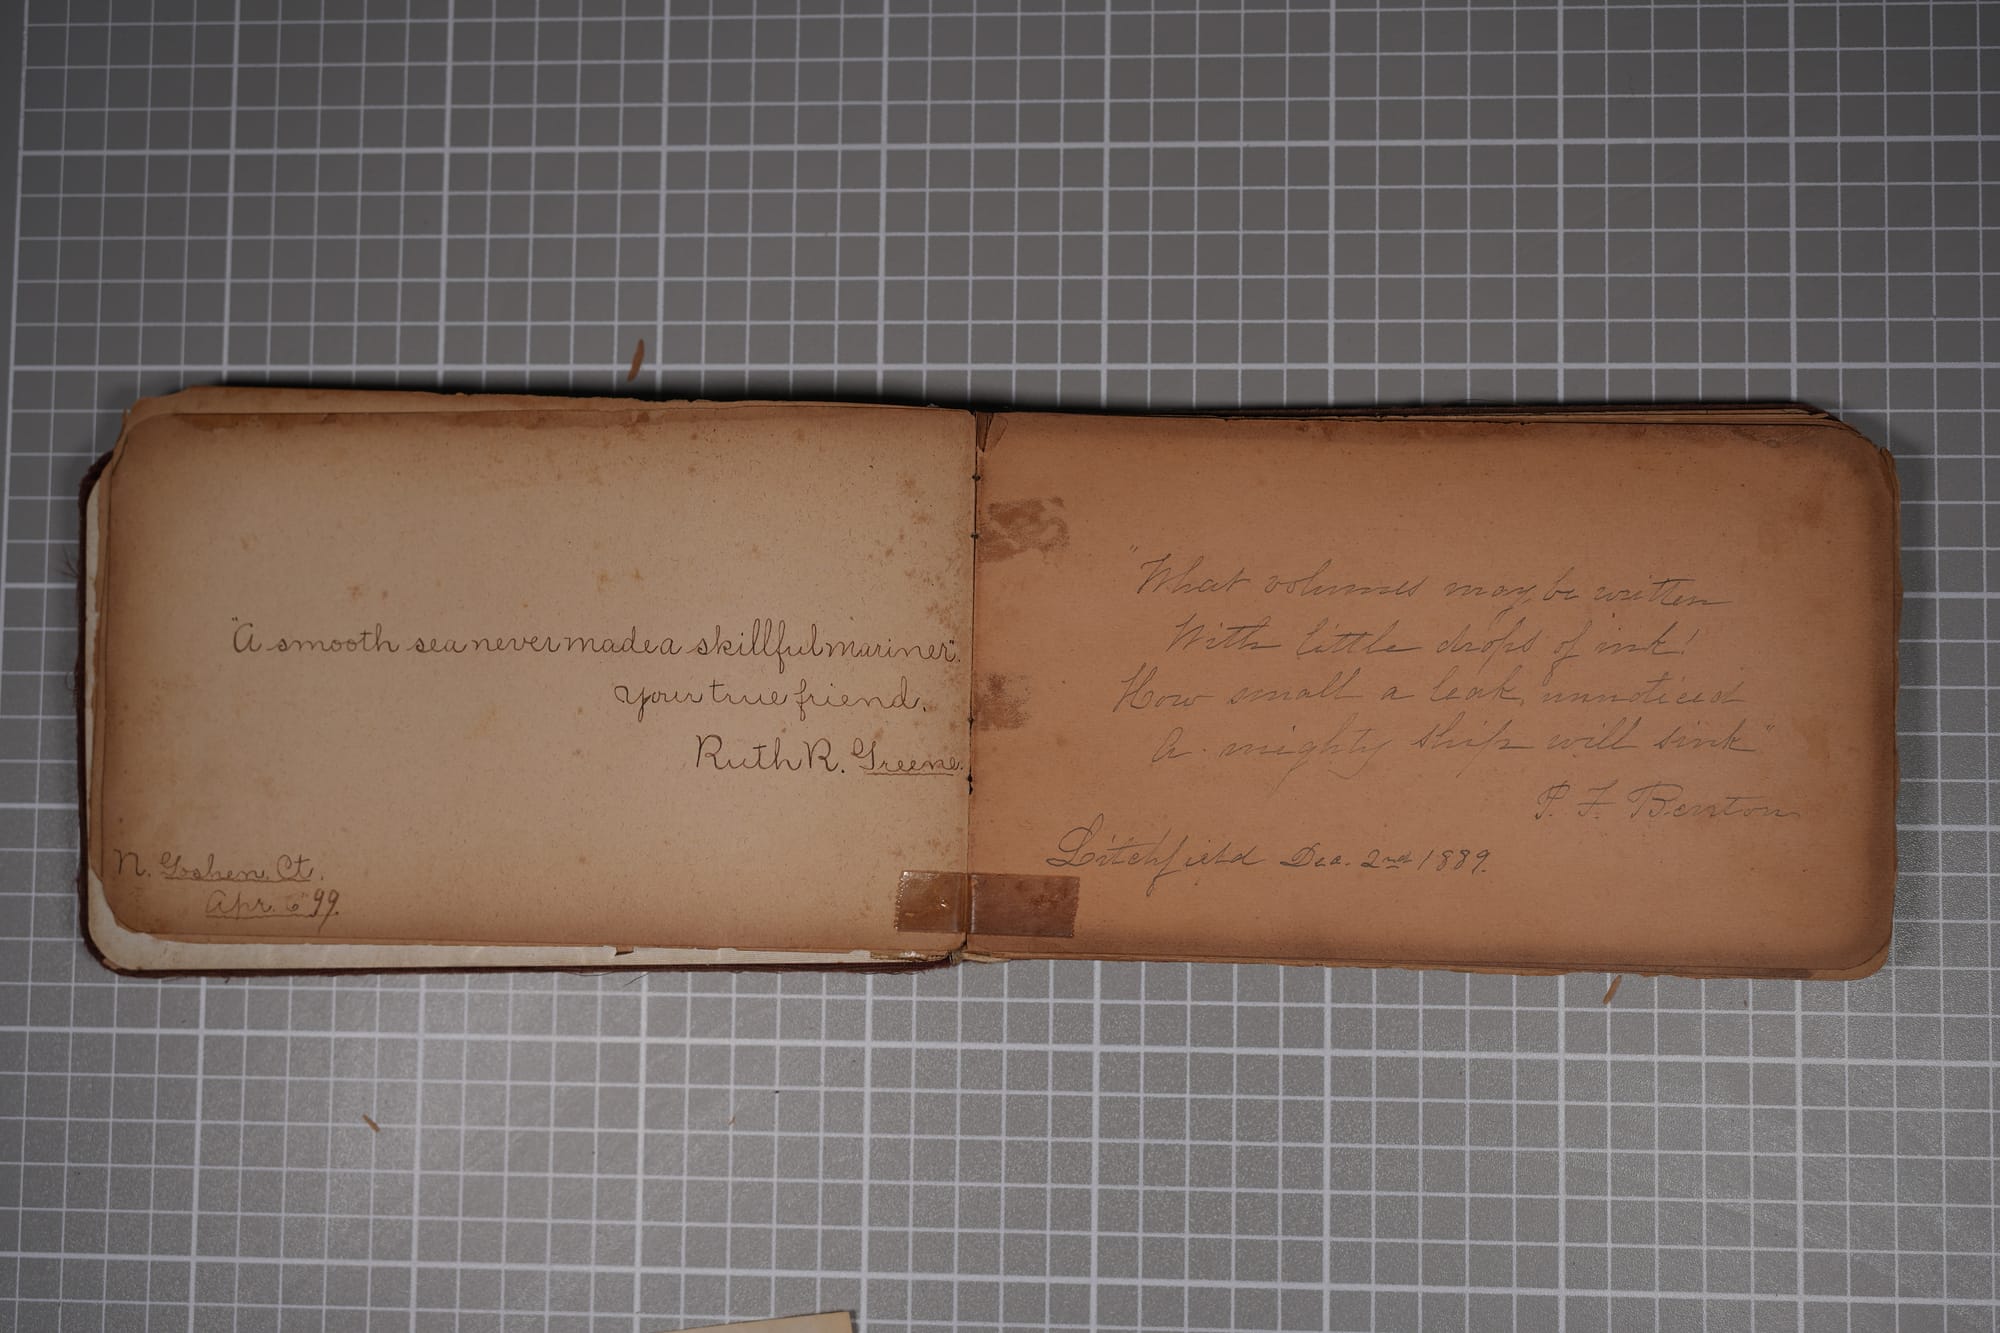 "A smooth sea never made a skillful mariner".
Your true friend.
Ruth R. Greene.
N. Goshen, Ct.
Apr. 6 '99.
"What volumes may be written
With little drops of ink!
How small a leak, unnoticed
A mighty ship will sink"
P. F. Benton
Litchfield Dec. 2nd 1889.